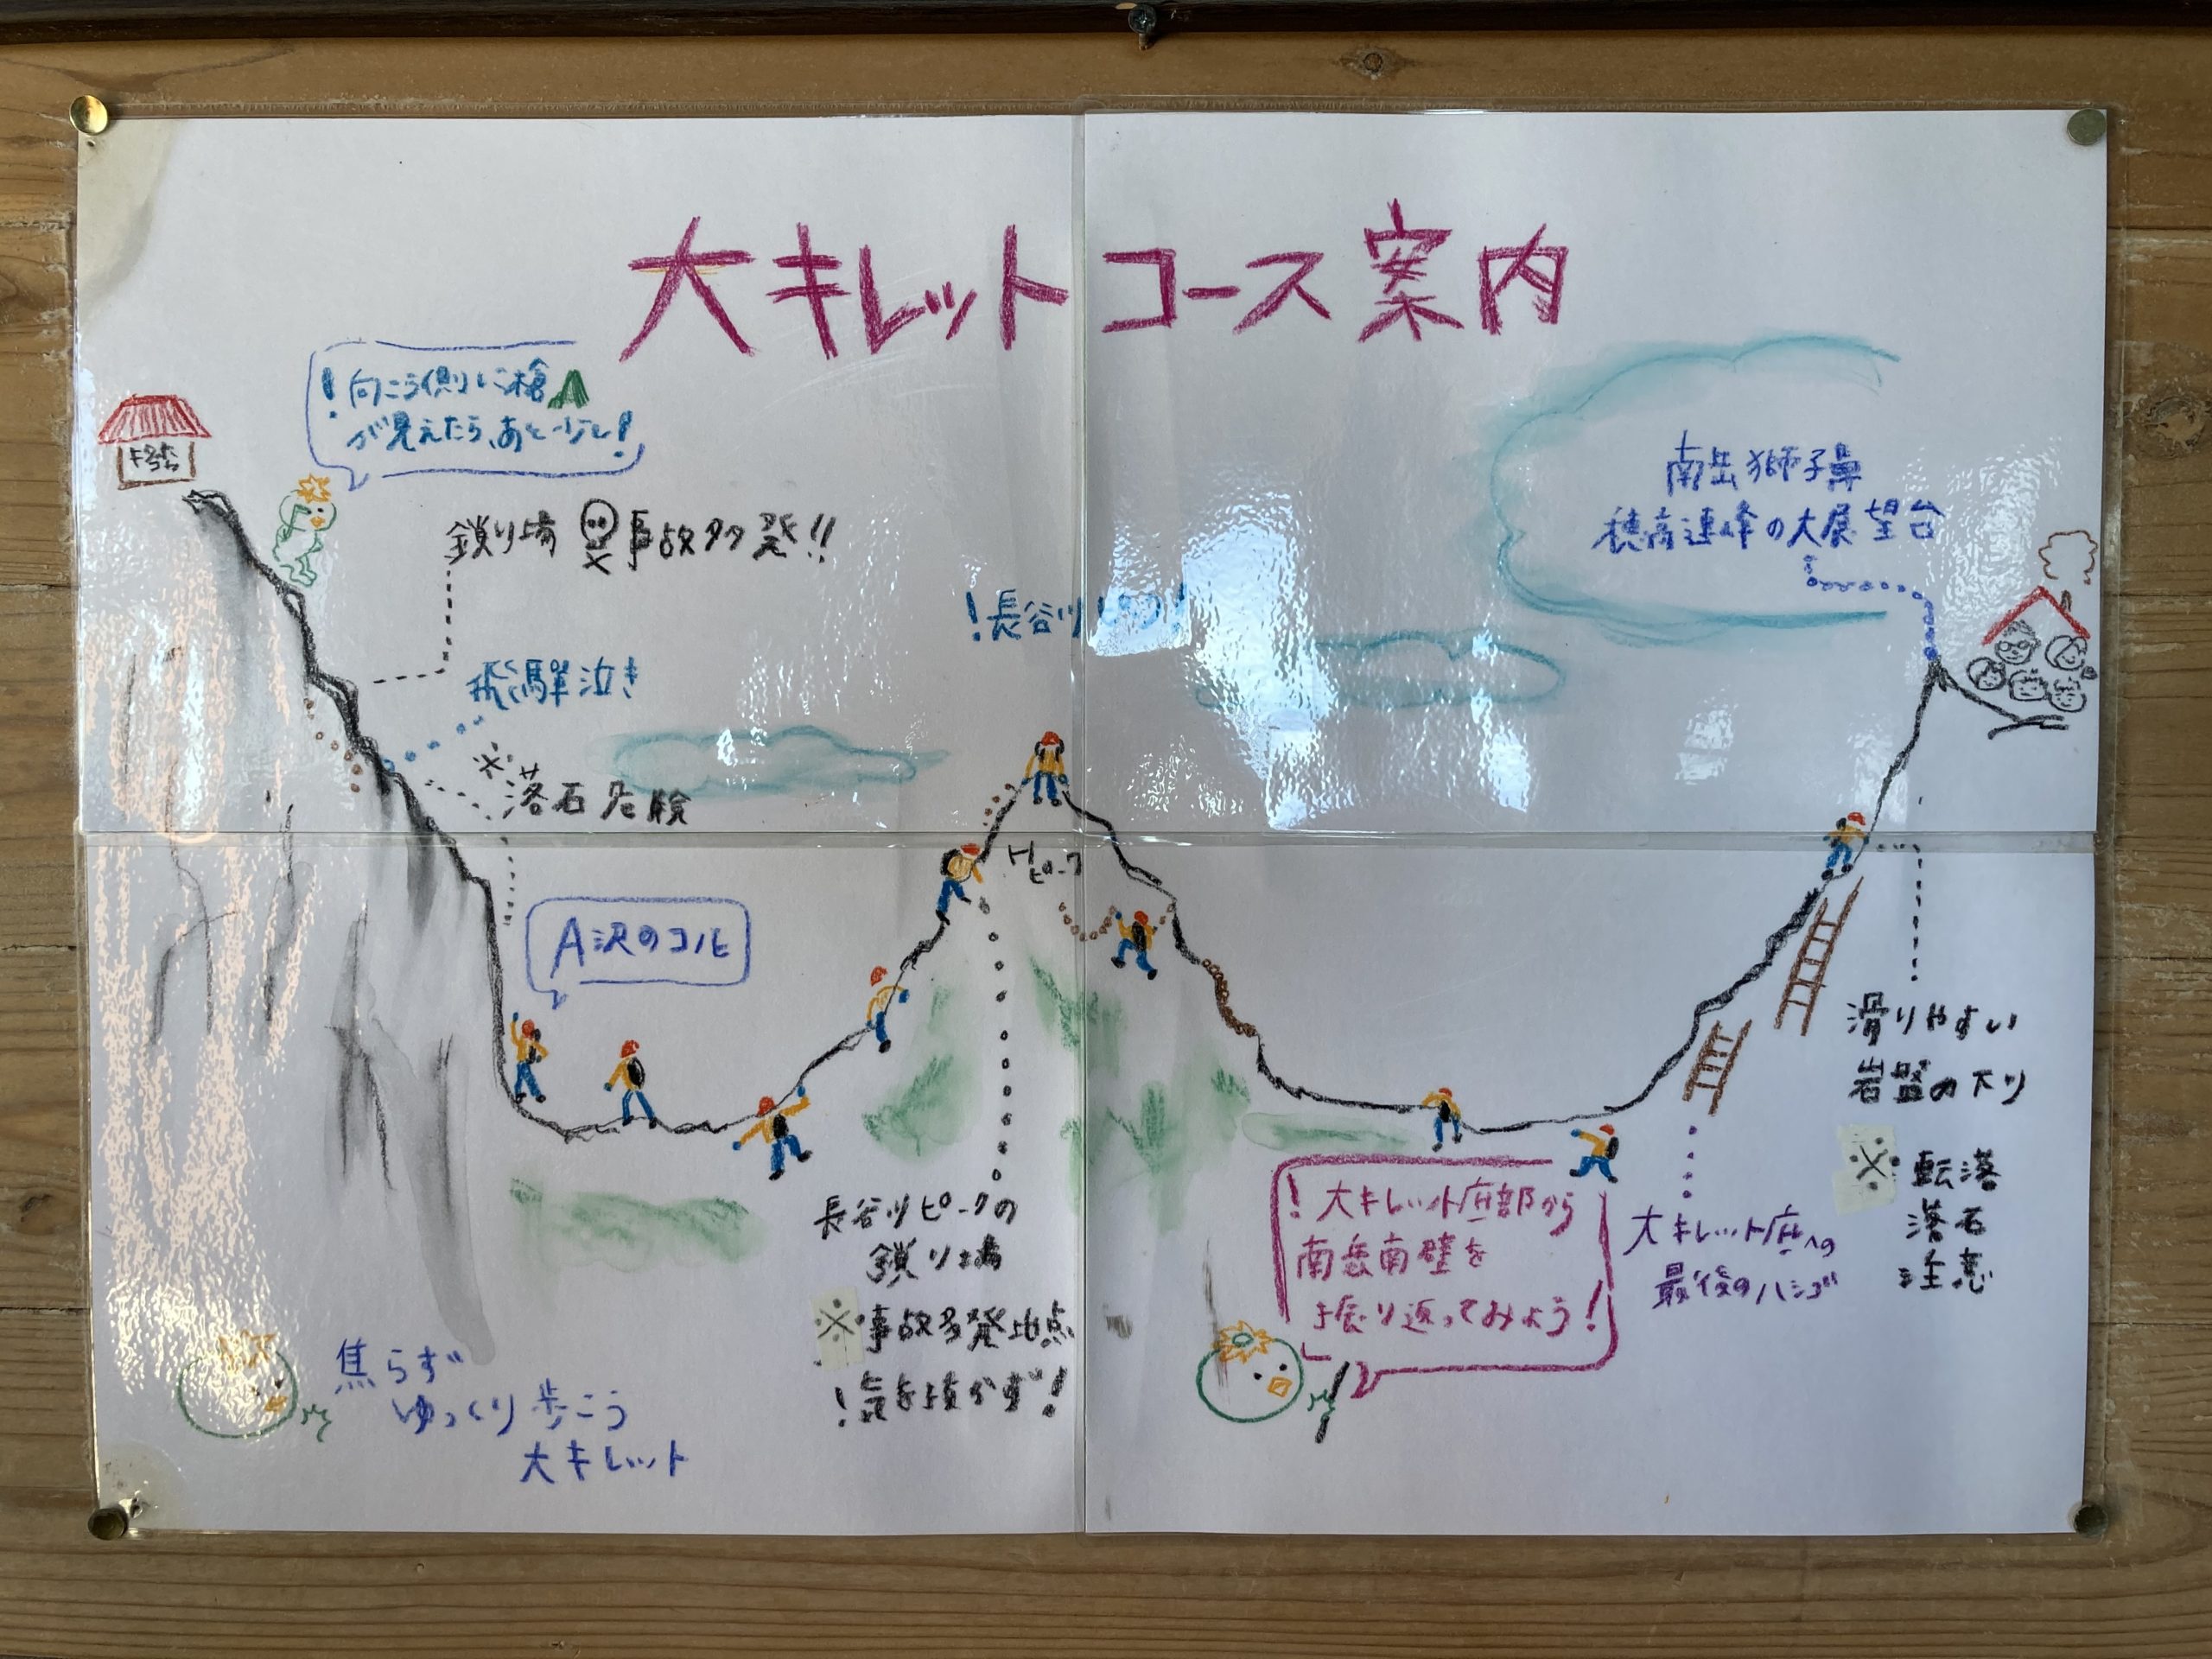 大キレットコース案内
！向こう側に槍
が見えたら、あと少し！
鎖り場 事故多発!!
飛騨泣き
※落石危険
A沢のコル
！長谷川
Hピーク
南岳獅子鼻
穂高連峰の大展望台
滑りやすい
岩盤の下り
※転落
落石
注意
大キレット底への
最後のハシゴ
！大キレット底部から
南岳南壁を
振り返ってみよう！
長谷川ピークの
鎖り場
※事故多発地点
！気を抜かず！
焦らず
ゆっくり歩こう
大キレット